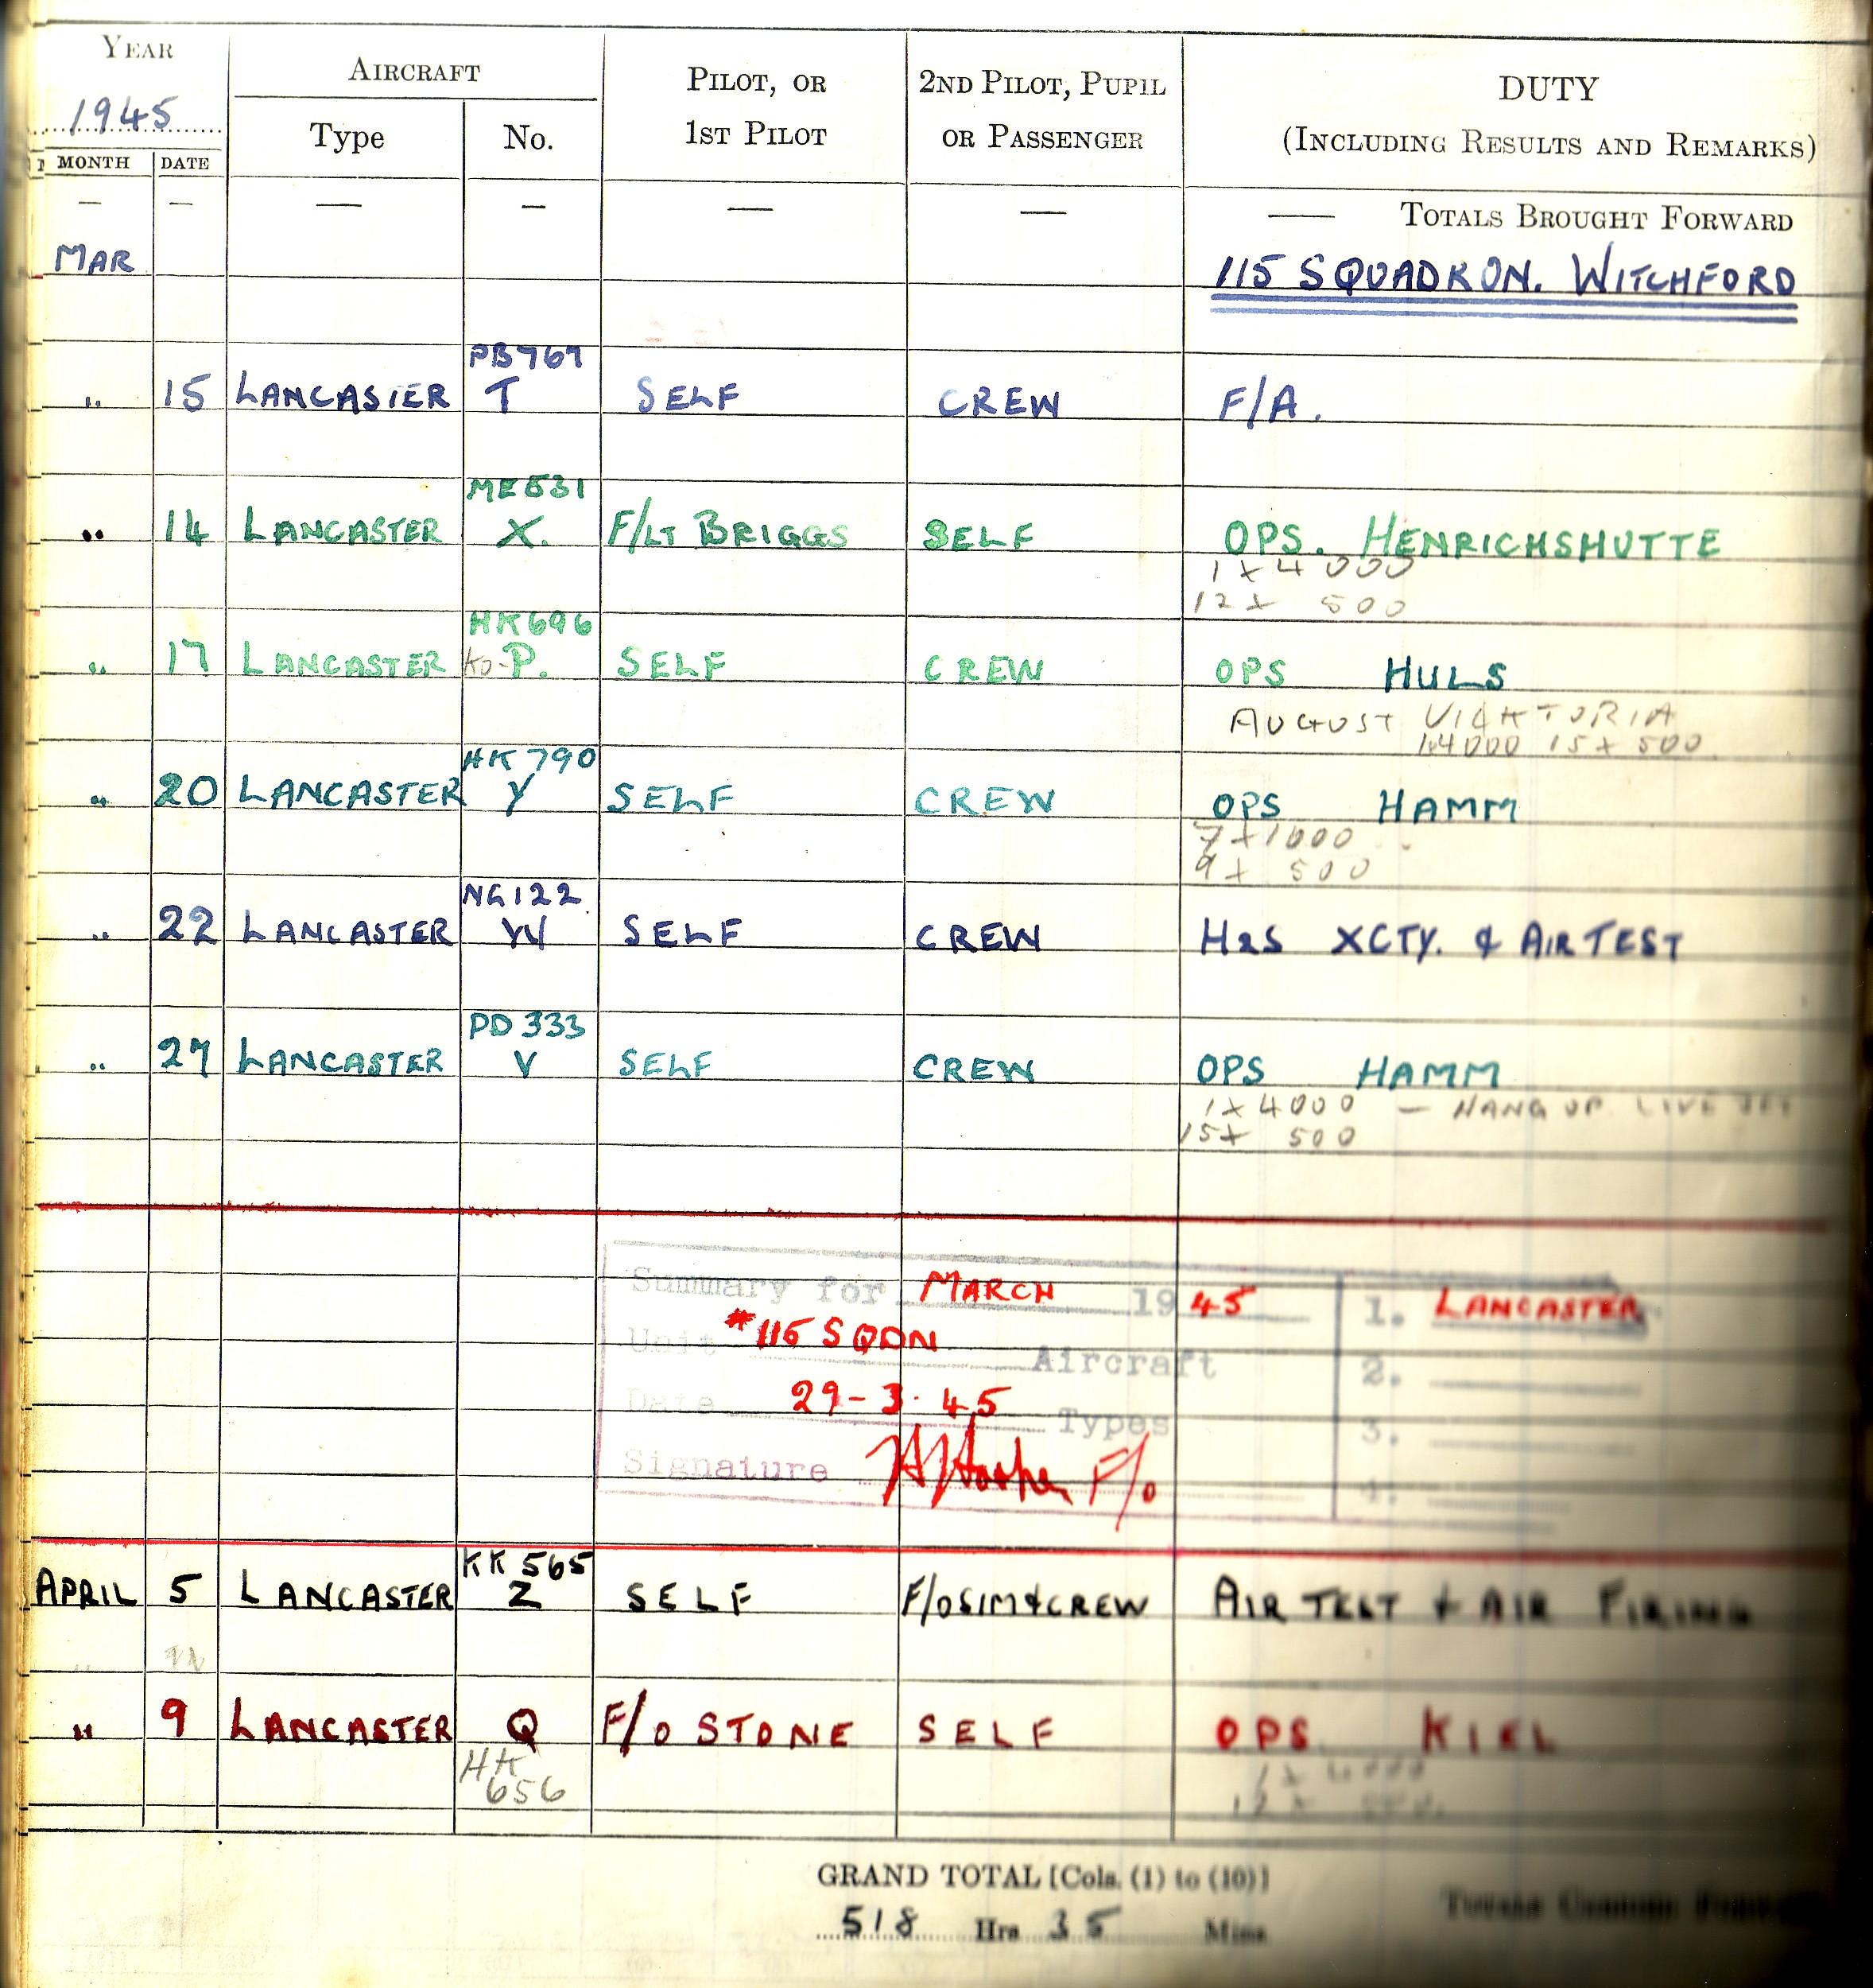 YEAR AIRCRAFT PILOT, OR 2ND PILOT, PUPIL DUTY
1945 Type No. 1ST PILOT OR PASSENGER (INCLUDING RESULTS AND REMARKS)
MONTH DATE
— — — — — — — TOTALS BROUGHT FORWARD
MAR 115 SQUADRON. WITCHFORD
PB767
" 15 LANCASTER T SELF CREW F/A.
ME531
" 14 LANCASTER X. F/LT BRIGGS SELF OPS. HENRICHSHUTTE
1 x 4000
12 x 500
HK696
" 17 LANCASTER KO-P. SELF CREW OPS HULS
AUGUST VICKTORIA
1x4000 15 x 500
HK790
" 20 LANCASTER Y SELF CREW OPS HAMM
7 x 1000
9 x 500
NG122
" 22 LANCASTER W SELF CREW H2S XCTY. & AIR TEST
PD333
" 27 LANCASTER V SELF CREW OPS HAMM
1 x 4000 — HANG UP LIVE
15 x 500
Summary for MARCH 1945 1. LANCASTER
Unit 115 SQDN Aircraft 2.
Date 29-3-45 Types 3.
Signature F/O 4.
KK 565
APRIL 5 LANCASTER Z SELF F/O SIM & CREW AIR TEST & AIR FIRING
" 9 LANCASTER Q F/O STONE SELF OPS KIEL
HK 1 x 4000
656 12 x 500
GRAND TOTAL [Cols. (1) to (10)]
518 Hrs 35 Mins
TOTALS CARRIED FORWARD